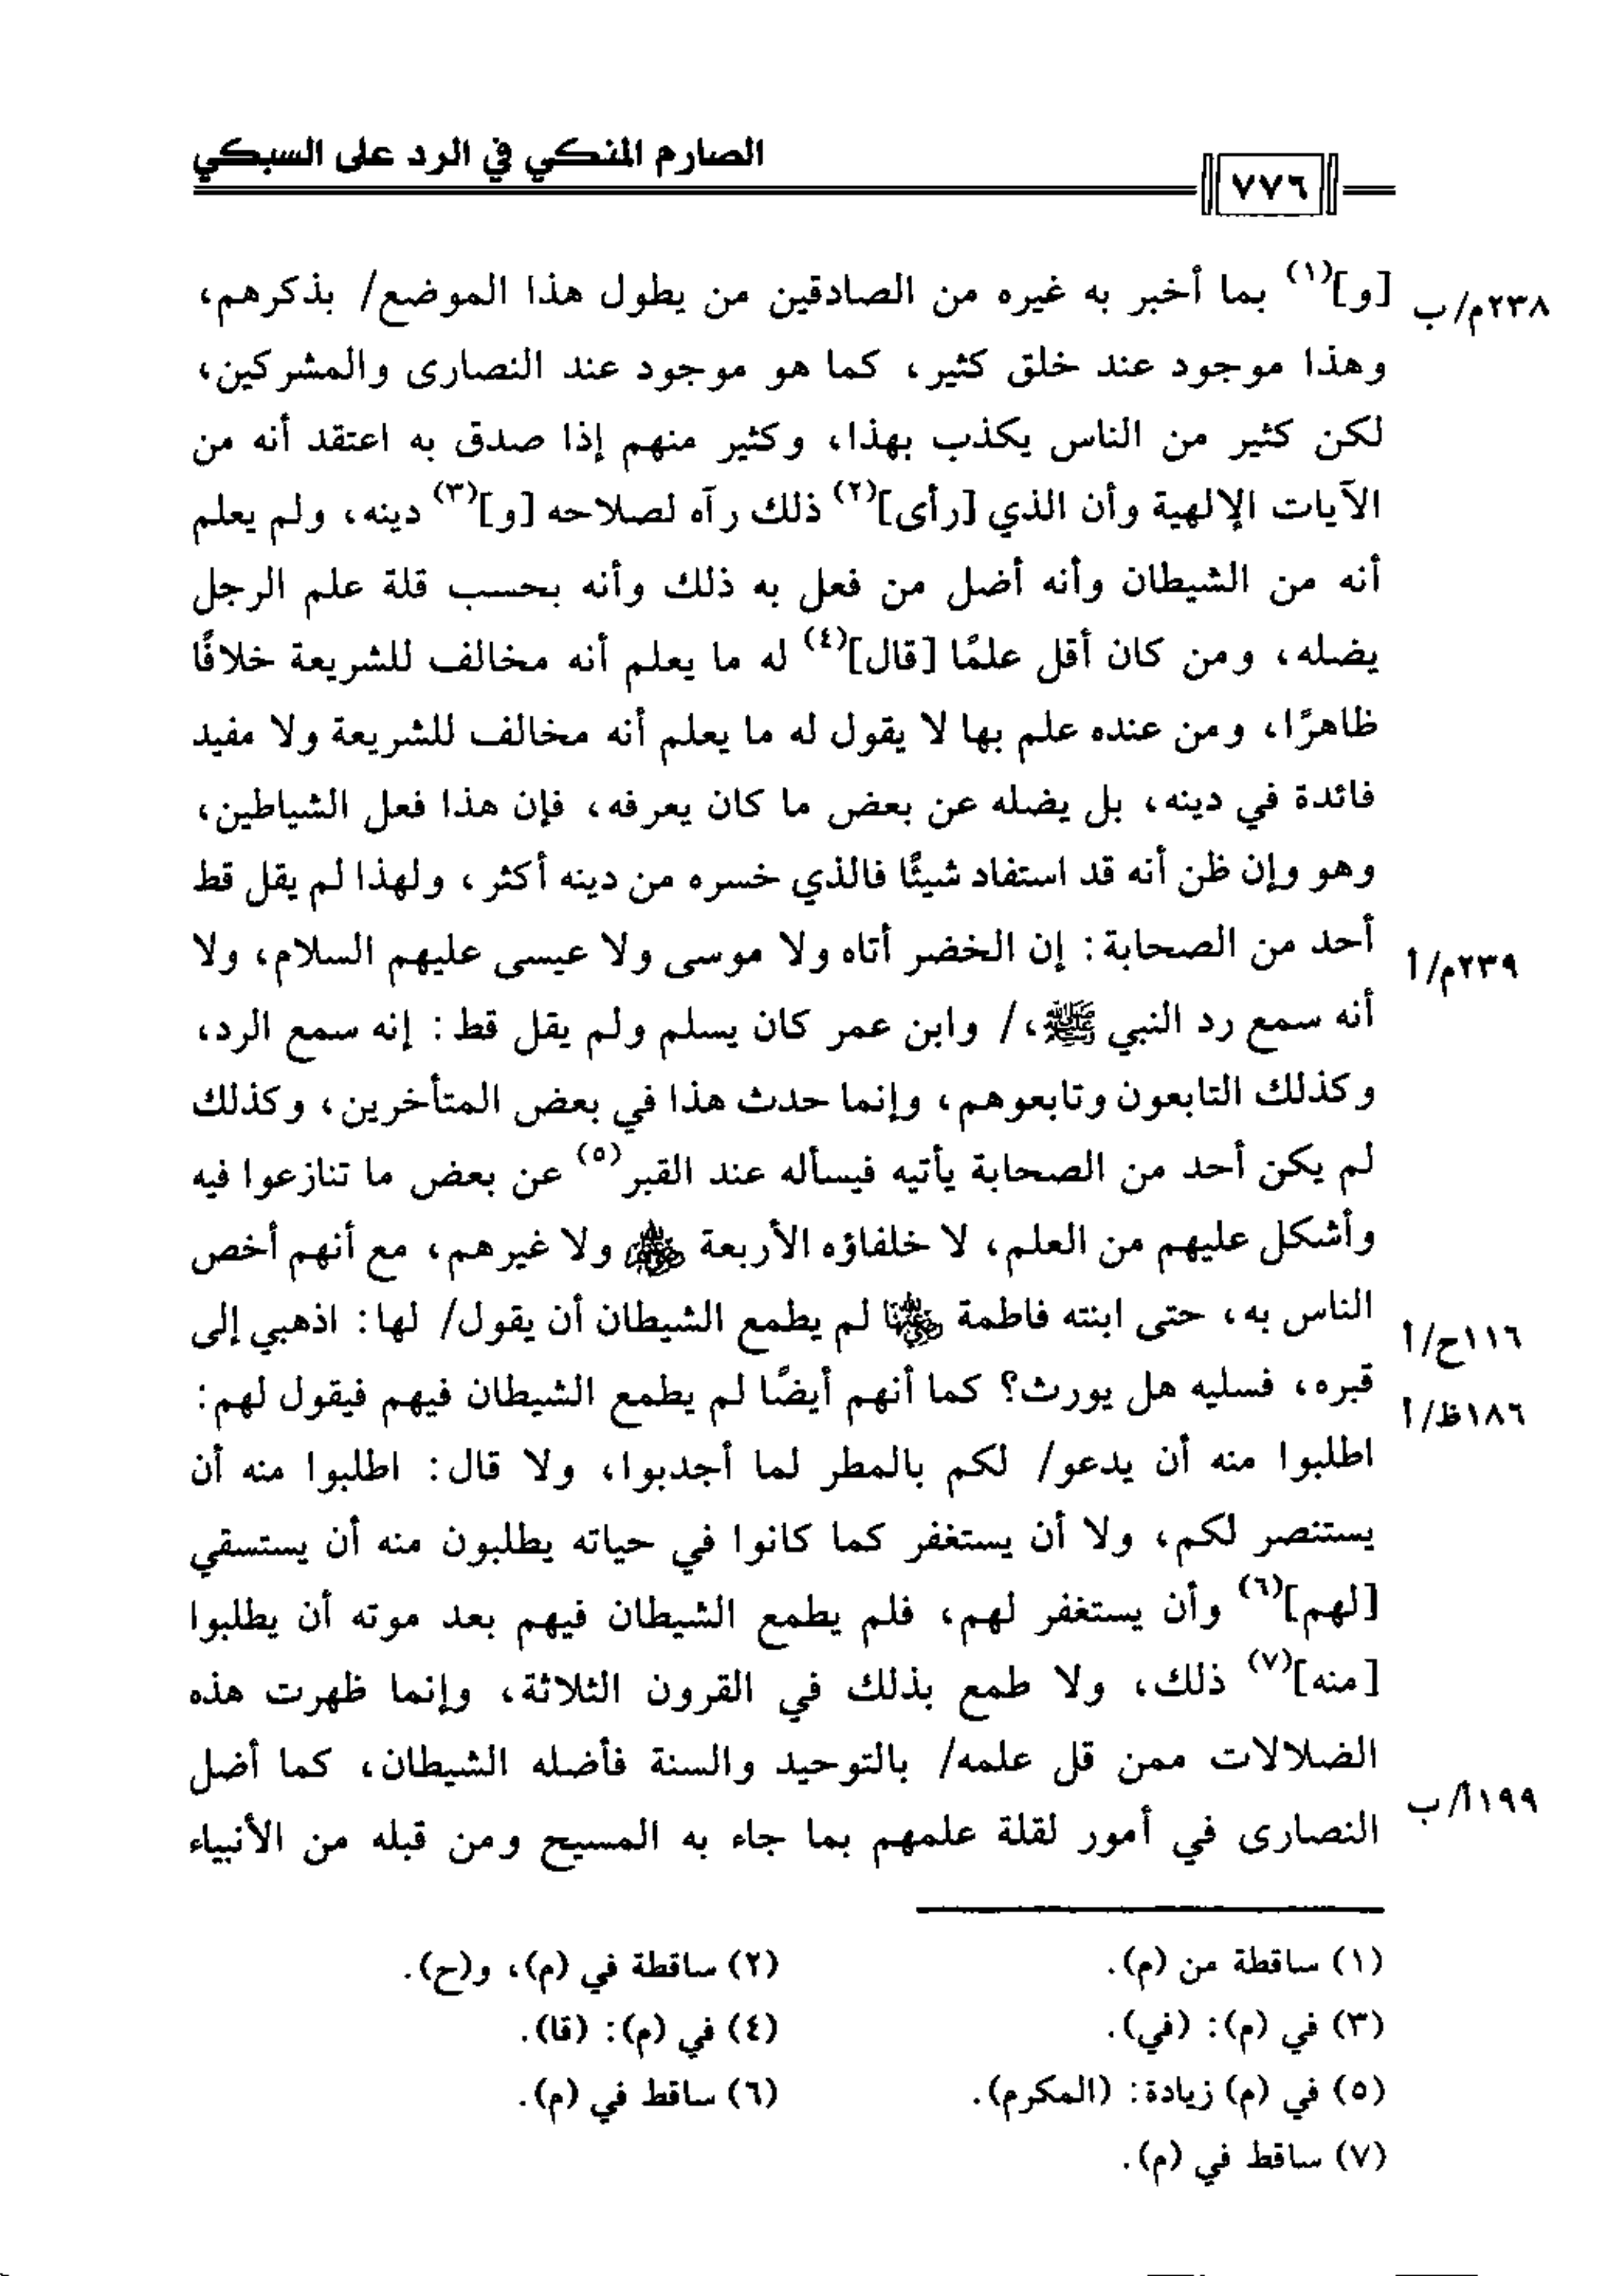 الصارم المنكي في الرد على السبكي
٧٧٦
[و](١) بما أخبر به غيره من الصادقين من يطول هذا الموضع/ بذكرهم،
٢٣٨م/ب
وهذا موجود عند خلق كثير، كما هو موجود عند النصارى والمشركين،
لكن كثير من الناس يكذب بهذا، وكثير منهم إذا صدق به اعتقد أنه من
الآيات الإلهية وأن الذي [رأى](٢) ذلك رآه لصلاحه [و](٣) دينه، ولم يعلم
أنه من الشيطان وأنه أضل من فعل به ذلك وأنه بحسب قلة علم الرجل
يضله، ومن كان أقل علمًا [قال](٤) له ما يعلم أنه مخالف للشريعة خلافًا
ظاهرًا، ومن عنده علم بها لا يقول له ما يعلم أنه مخالف للشريعة ولا مفيد
فائدة في دينه، بل يضله عن بعض ما كان يعرفه، فإن هذا فعل الشياطين،
وهو وإن ظن أنه قد استفاد شيئًا فالذي خسره من دينه أكثر، ولهذا لم يقل قط
أحد من الصحابة: إن الخضر أتاه ولا موسى ولا عيسى عليهم السلام، ولا
٢٣٩م/أ
أنه سمع رد النبي ﷺ،/ وابن عمر كان يسلم ولم يقل قط: إنه سمع الرد،
وكذلك التابعون وتابعوهم، وإنما حدث هذا في بعض المتأخرين، وكذلك
لم يكن أحد من الصحابة يأتيه فيسأله عند القبر(٥) عن بعض ما تنازعوا فيه
وأشكل عليهم من العلم، لا خلفاؤه الأربعة رضي الله عنهم ولا غيرهم، مع أنهم أخص
الناس به، حتى ابنته فاطمة رضي الله عنها لم يطمع الشيطان أن يقول/ لها: اذهبي إلى
١١٦ح/أ
قبره، فسليه هل يورث؟ كما أنهم أيضًا لم يطمع الشيطان فيهم فيقول لهم:
١٨٦ظ/أ
اطلبوا منه أن يدعو/ لكم بالمطر لما أجدبوا، ولا قال: اطلبوا منه أن
يستنصر لكم، ولا أن يستغفر كما كانوا في حياته يطلبون منه أن يستسقي
[لهم](٦) وأن يستغفر لهم، فلم يطمع الشيطان فيهم بعد موته أن يطلبوا
[منه](٧) ذلك، ولا طمع بذلك في القرون الثلاثة، وإنما ظهرت هذه
الضلالات ممن قل علمه/ بالتوحيد والسنة فأضله الشيطان، كما أضل
١٩٩أ/ب
النصارى في أمور لقلة علمهم بما جاء به المسيح ومن قبله من الأنبياء
(١) ساقطة من (م).
(٢) ساقطة في (م)، و(ح).
(٣) في (م): (في).
(٤) في (م): (قا).
(٥) في (م) زيادة: (المكرم).
(٦) ساقط في (م).
(٧) ساقط في (م).